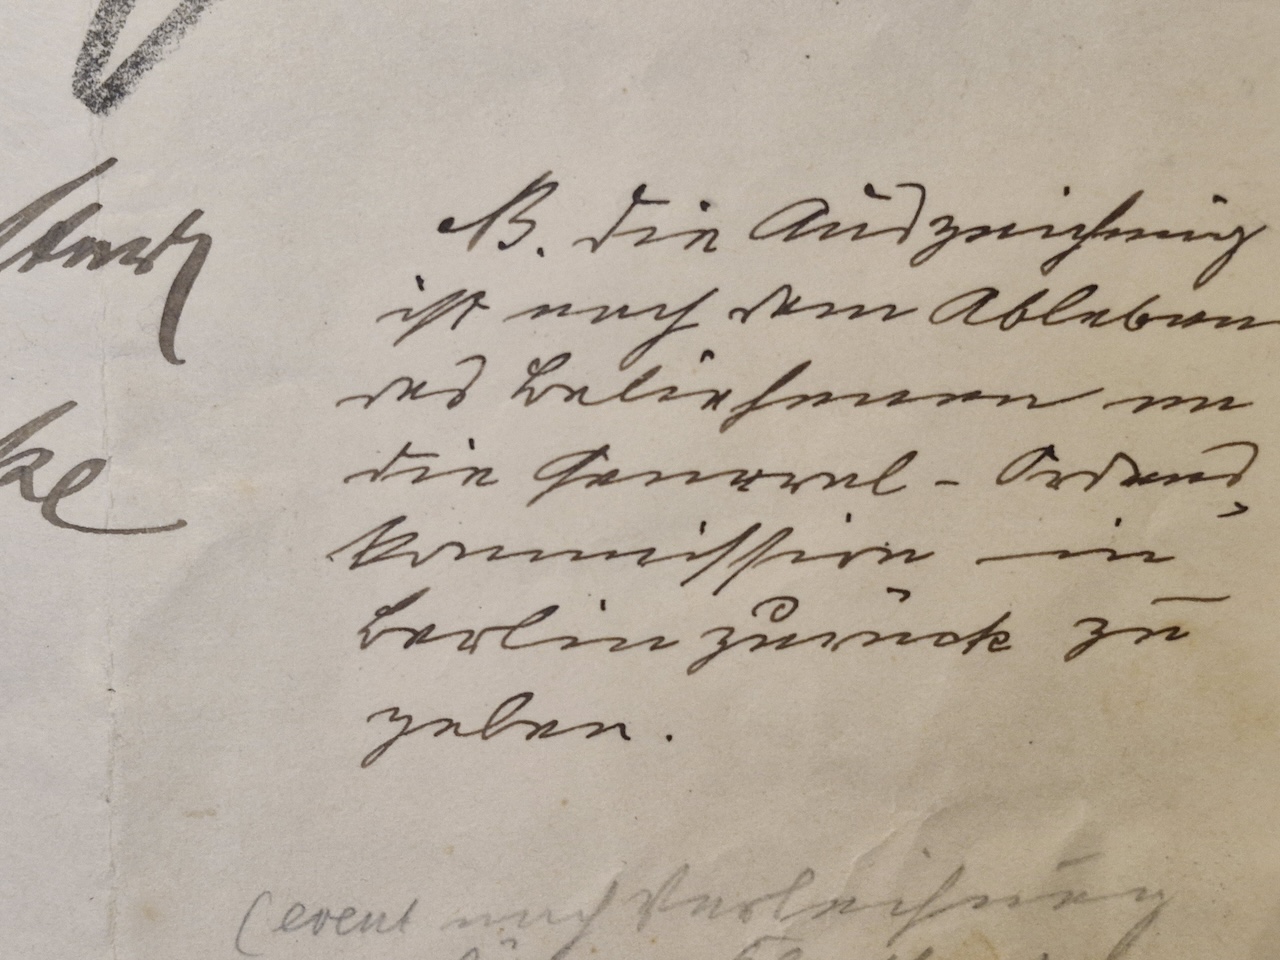 NB. die Auszeichnung
ist nach dem Ableben
des Beliehenen an
die General-Ordens-
kommission in
Berlin zurück zu
geben.
(event nach Verleihung